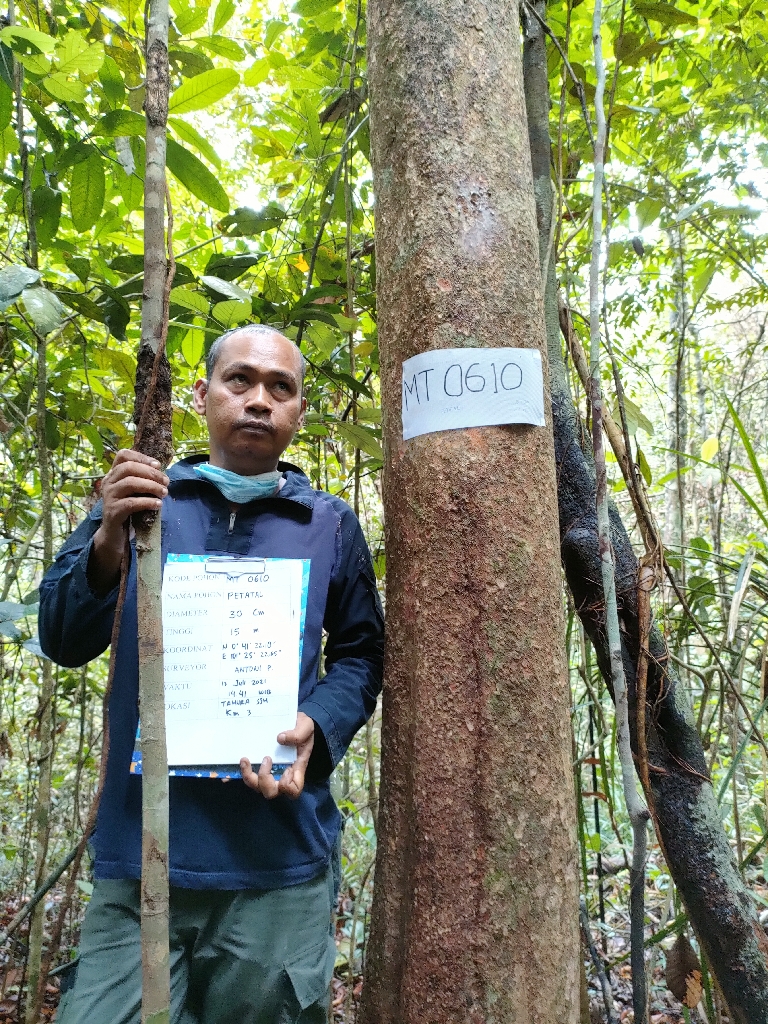 MT 0610
KODE POHON MT 0610
NAMA POHON PETATAL
DIAMETER 30 Cm
TINGGI 15 m
KOORDINAT N 0° 41' 32.0"
SURVEYOR ANTONI P.
WAKTU 13 Juli 2021
14.41 WIB
LOKASI TAHURA SSH
Km 3